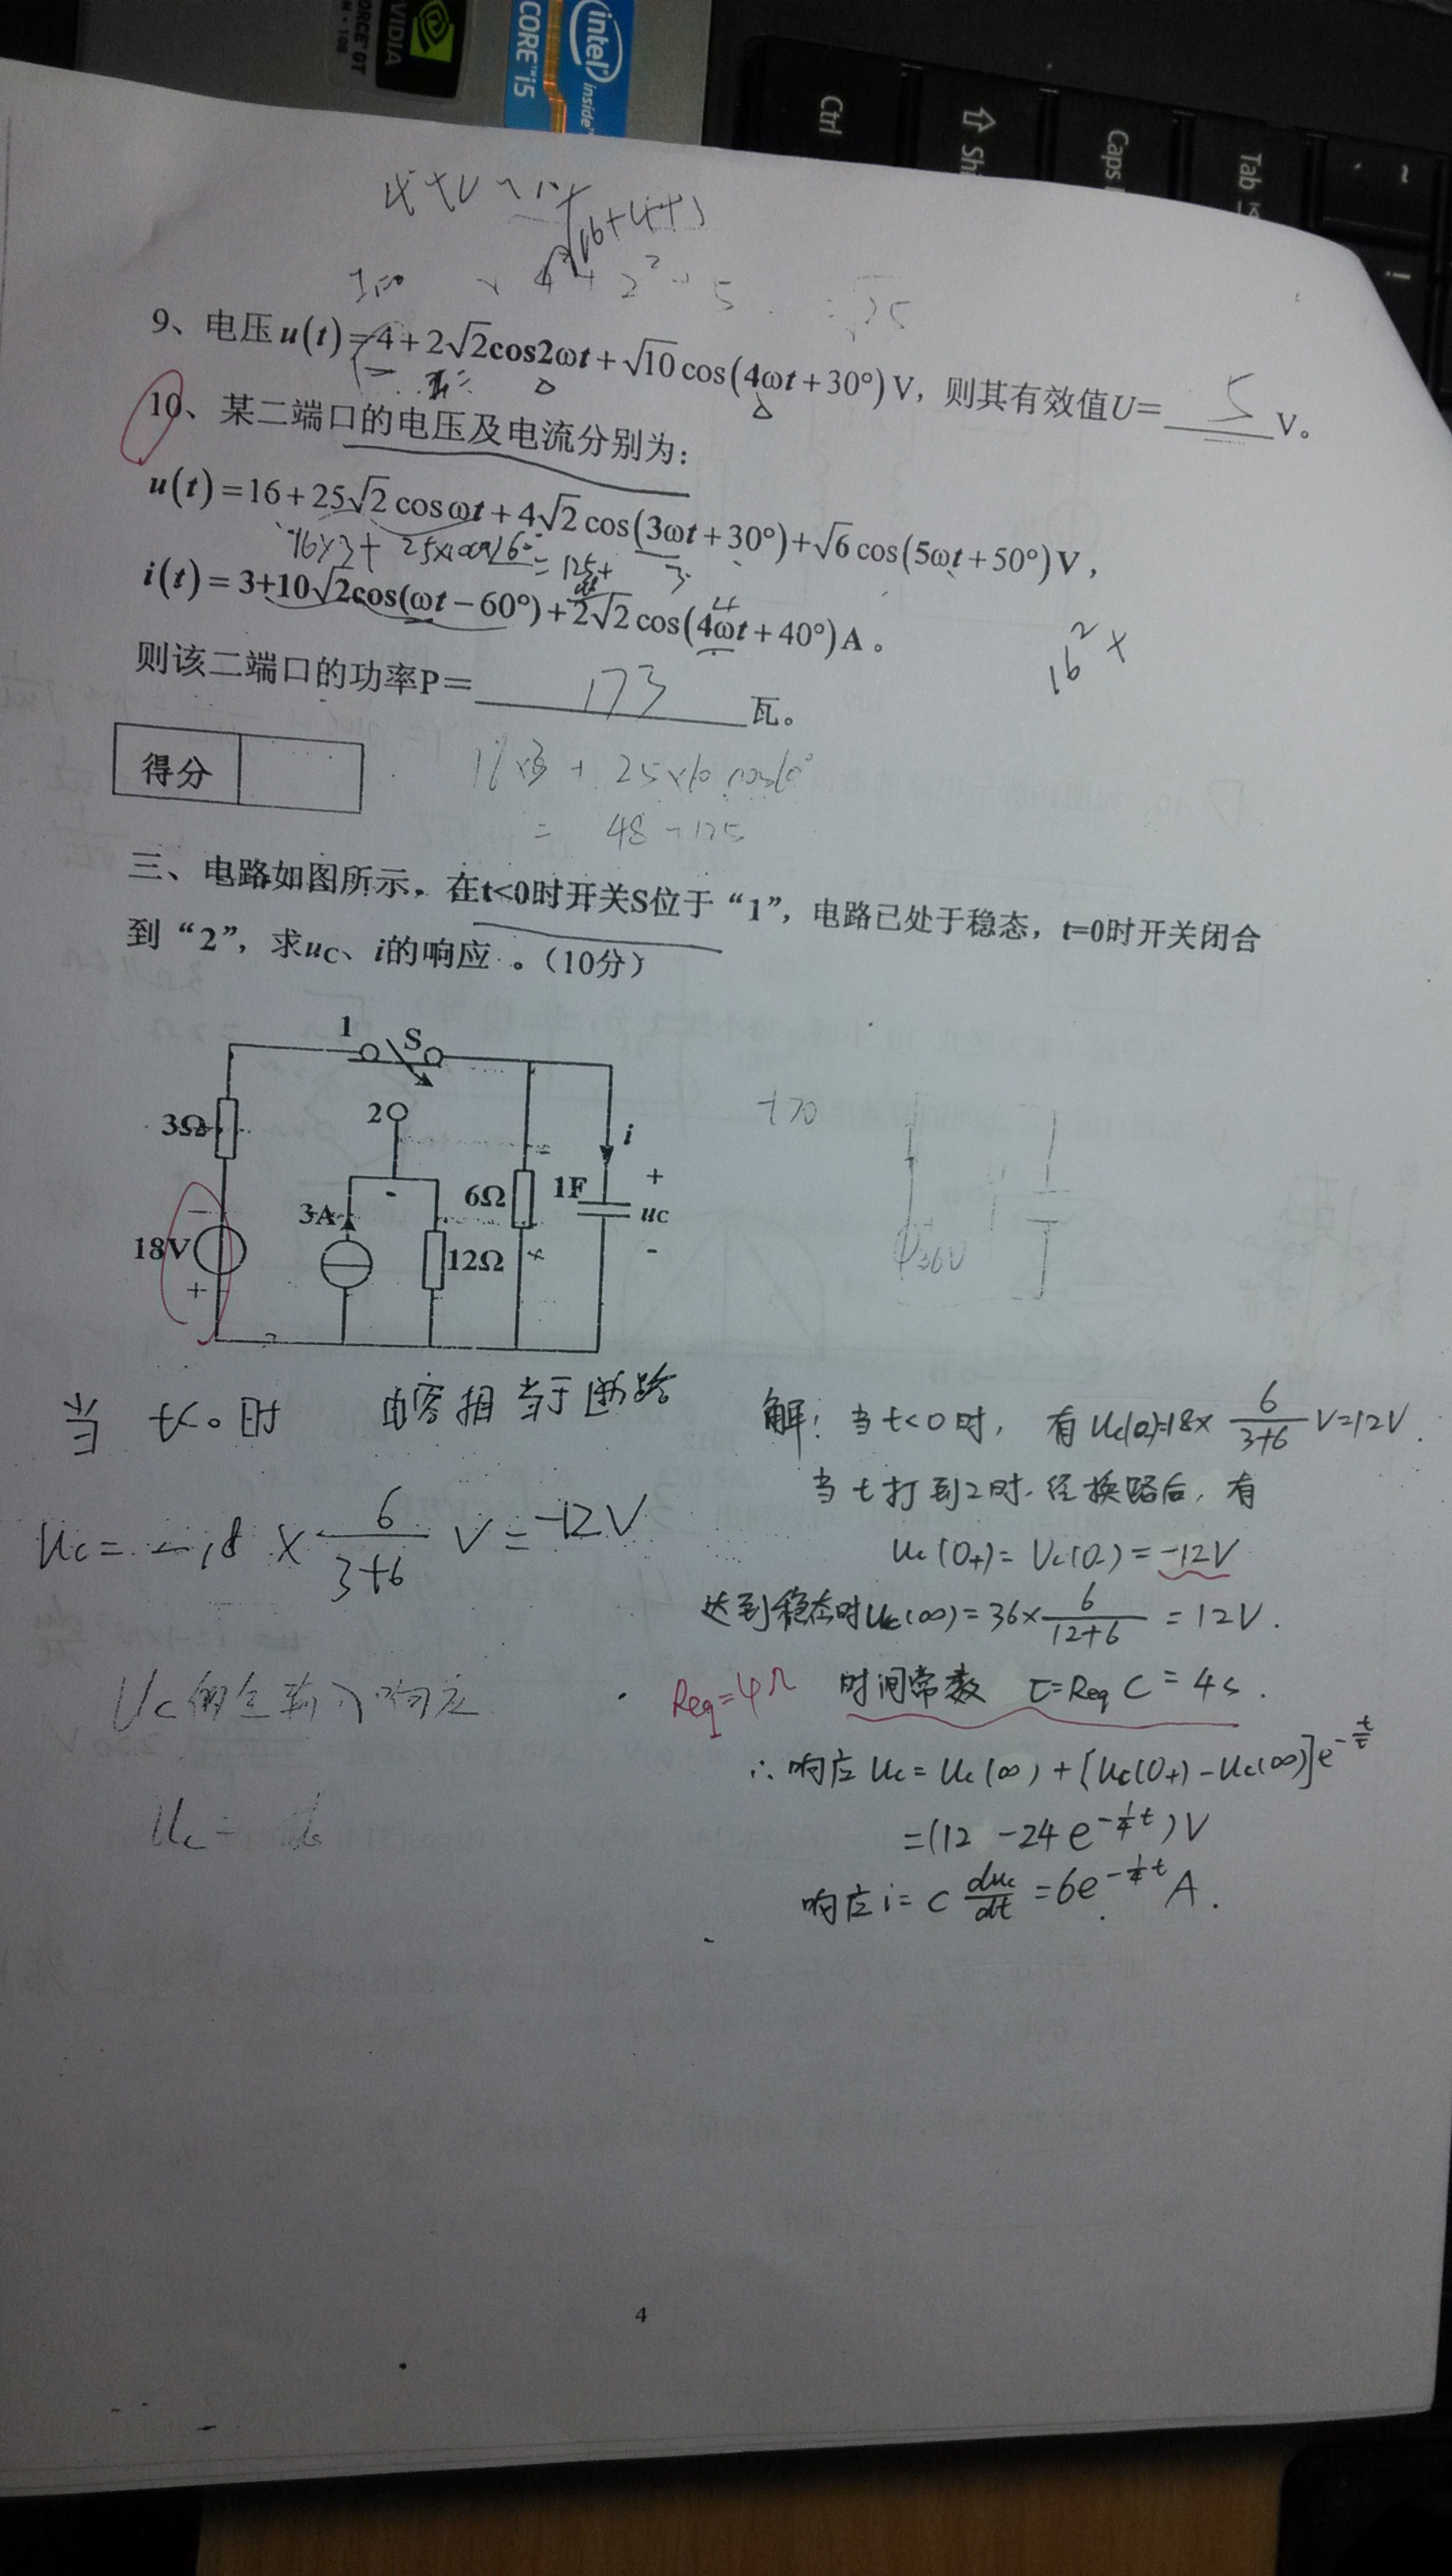 VIDIA
ORCE GT
intel
inside
CORE i5
Ctrl
Caps
Tab
~
!
9、电压u(t)=4+2√2cos2ωt+√10cos(4ωt+30°)V，则其有效值U=5V。
10、某二端口的电压及电流分别为：
u(t)=16+25√2cosωt+4√2cos(3ωt+30°)+√6cos(5ωt+50°)V，
i(t)=3+10√2cos(ωt-60°)+2√2cos(4ωt+40°)A。
16²×
则该二端口的功率P=173瓦。
得分
=48+125
三、电路如图所示，在t<0时开关S位于“1”，电路已处于稳态，t=0时开关闭合
到“2”，求uC、i的响应。（10分）
1 S
3Ω 2
i
3A 6Ω 1F + uC -
18V - +
12Ω
t>0
36V
当 t<0时 电容相当于断路
uc=-18×6/(3+6)V=-12V
Uc的全输入响应
解：当t<0时，有uc(0)=18×6/(3+6)V=12V.
当t打到2时，经换路后，有
uc(0+)=Uc(0-)=-12V
达到稳态时uc(∞)=36×6/(12+6)=12V.
Req=4Ω 时间常数 τ=Req C=4s.
∴响应uc=uc(∞)+[uc(0+)-uc(∞)]e^(-t/τ)
=(12-24e^(-1/4 t))V
响应i=C duc/dt=6e^(-1/4 t)A.
4